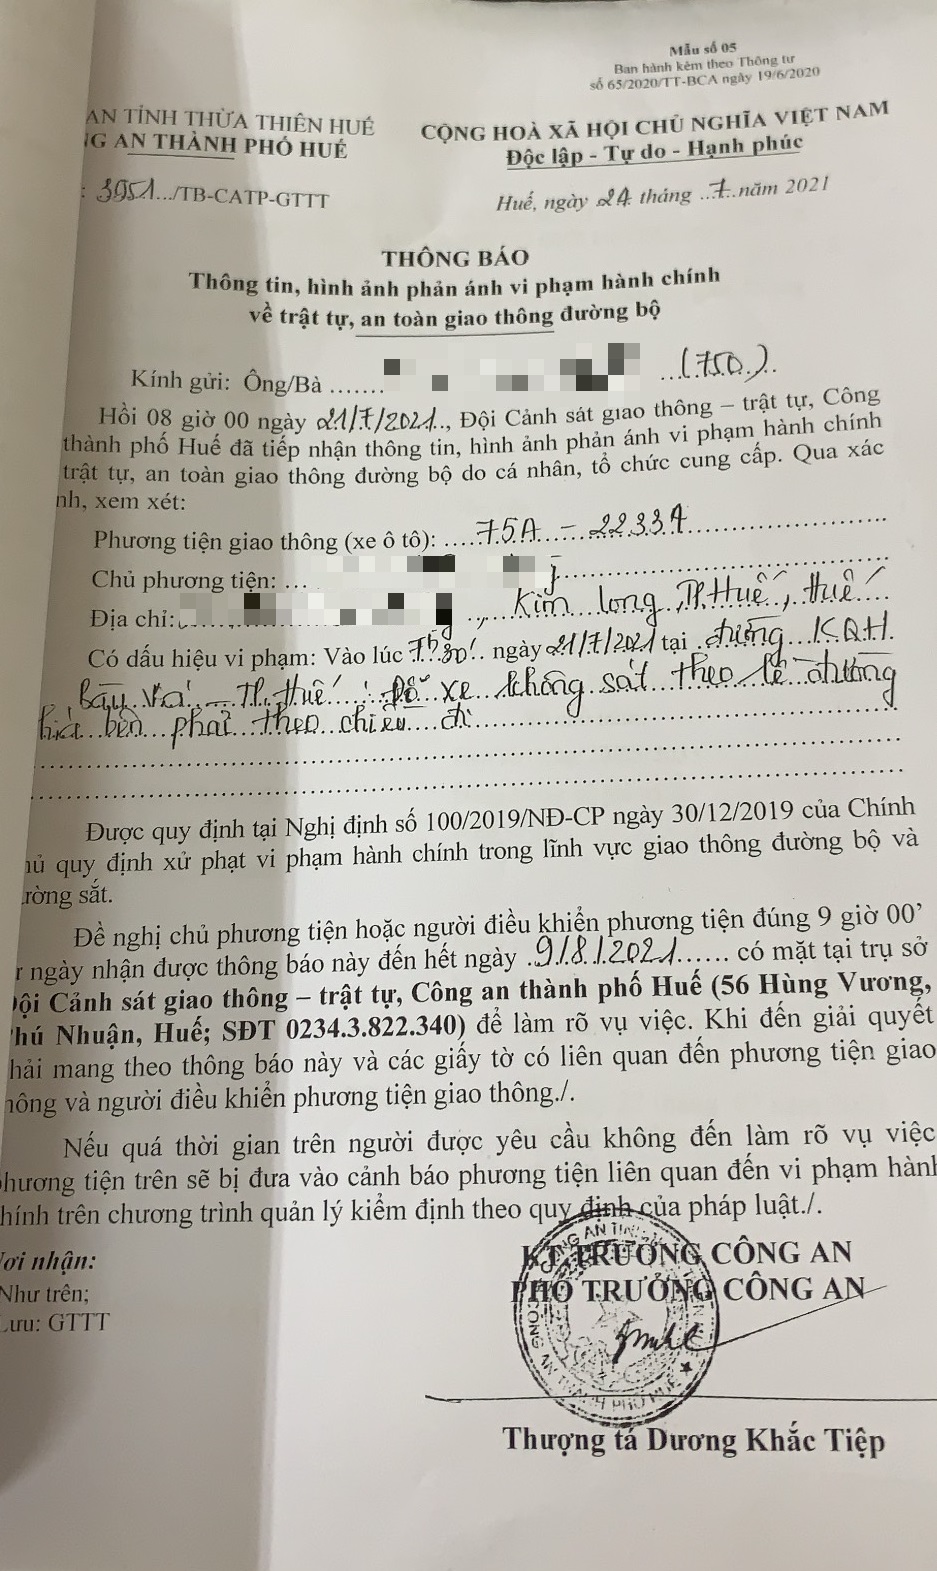 Mẫu số 05
Ban hành kèm theo Thông tư
số 65/2020/TT-BCA ngày 19/6/2020
AN TỈNH THỪA THIÊN HUẾ
NG AN THÀNH PHỐ HUẾ
CỘNG HOÀ XÃ HỘI CHỦ NGHĨA VIỆT NAM
Độc lập - Tự do - Hạnh phúc
: 3951.../TB-CATP-GTTT
Huế, ngày 24 tháng ..7..năm 2021
THÔNG BÁO
Thông tin, hình ảnh phản ánh vi phạm hành chính
về trật tự, an toàn giao thông đường bộ
Kính gửi: Ông/Bà ....... ...(750.)..
Hồi 08 giờ 00 ngày 21/7/2021.., Đội Cảnh sát giao thông – trật tự, Công
thành phố Huế đã tiếp nhận thông tin, hình ảnh phản ánh vi phạm hành chính
trật tự, an toàn giao thông đường bộ do cá nhân, tổ chức cung cấp. Qua xác
nh, xem xét:
Phương tiện giao thông (xe ô tô): ....75A – 22334
Chủ phương tiện: ...
Địa chỉ: , Kim long, TP. Huế, Huế
Có dấu hiệu vi phạm: Vào lúc 7h30'.. ngày 21/7/2021 tại đường KQH
Bàu Vá – TP. Huế : Đỗ xe không sát theo lề đường
phía bên phải theo chiều đi
Được quy định tại Nghị định số 100/2019/NĐ-CP ngày 30/12/2019 của Chính
hủ quy định xử phạt vi phạm hành chính trong lĩnh vực giao thông đường bộ và
ường sắt.
Đề nghị chủ phương tiện hoặc người điều khiển phương tiện đúng 9 giờ 00’
ừ ngày nhận được thông báo này đến hết ngày .9/8/2021...... có mặt tại trụ sở
Đội Cảnh sát giao thông – trật tự, Công an thành phố Huế (56 Hùng Vương,
Phú Nhuận, Huế; SĐT 0234.3.822.340) để làm rõ vụ việc. Khi đến giải quyết
hải mang theo thông báo này và các giấy tờ có liên quan đến phương tiện giao
hông và người điều khiển phương tiện giao thông./.
Nếu quá thời gian trên người được yêu cầu không đến làm rõ vụ việc
phương tiện trên sẽ bị đưa vào cảnh báo phương tiện liên quan đến vi phạm hành
hính trên chương trình quản lý kiểm định theo quy định của pháp luật./.
Nơi nhận:
Như trên;
Lưu: GTTT
KT.TRƯỞNG CÔNG AN
PHÓ TRƯỞNG CÔNG AN
Thượng tá Dương Khắc Tiệp